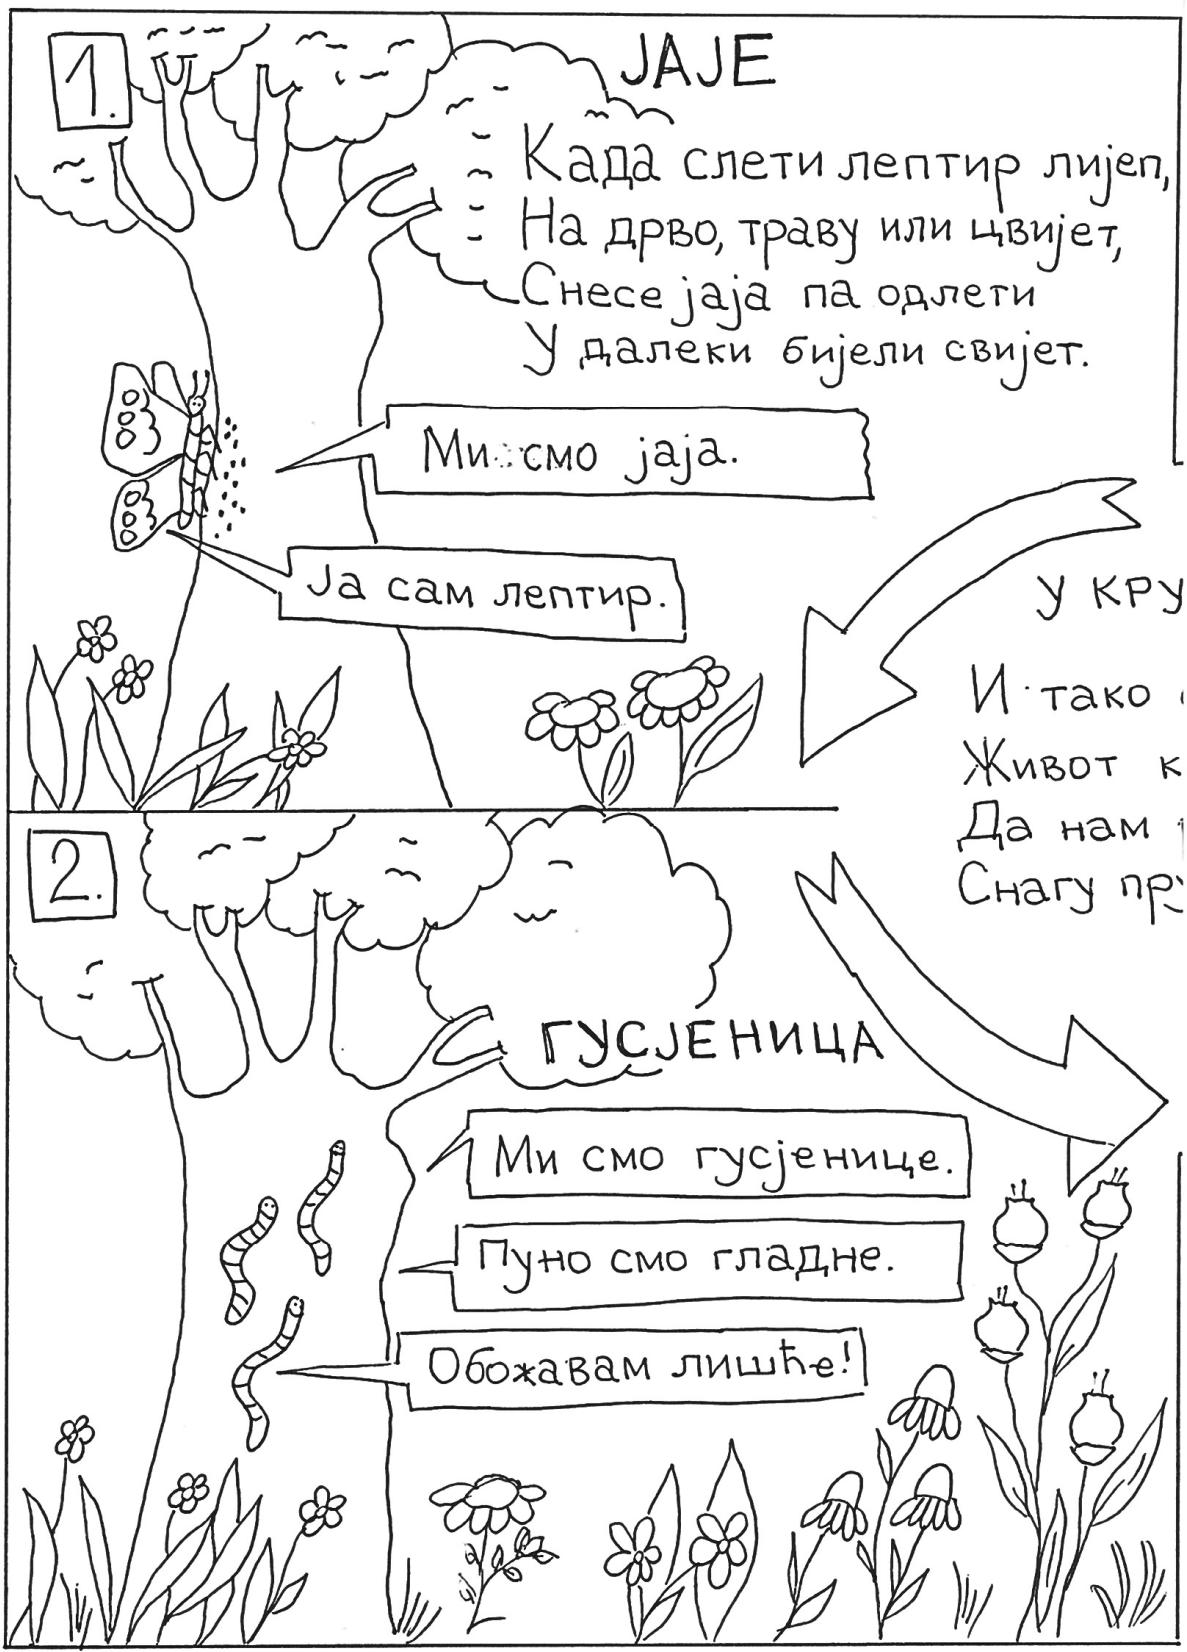 1.
ЈАЈЕ
Када слети лептир лијеп,
На дрво, траву или цвијет,
Снесе јаја па одлети
У далеки бијели свијет.
Ми смо јаја.
Ја сам лептир.
У
И тако
Живот
Да нам
Снагу
2.
ГУСЈЕНИЦА
Ми смо гусјенице.
Пуно смо гладне.
Обожавам лишће!